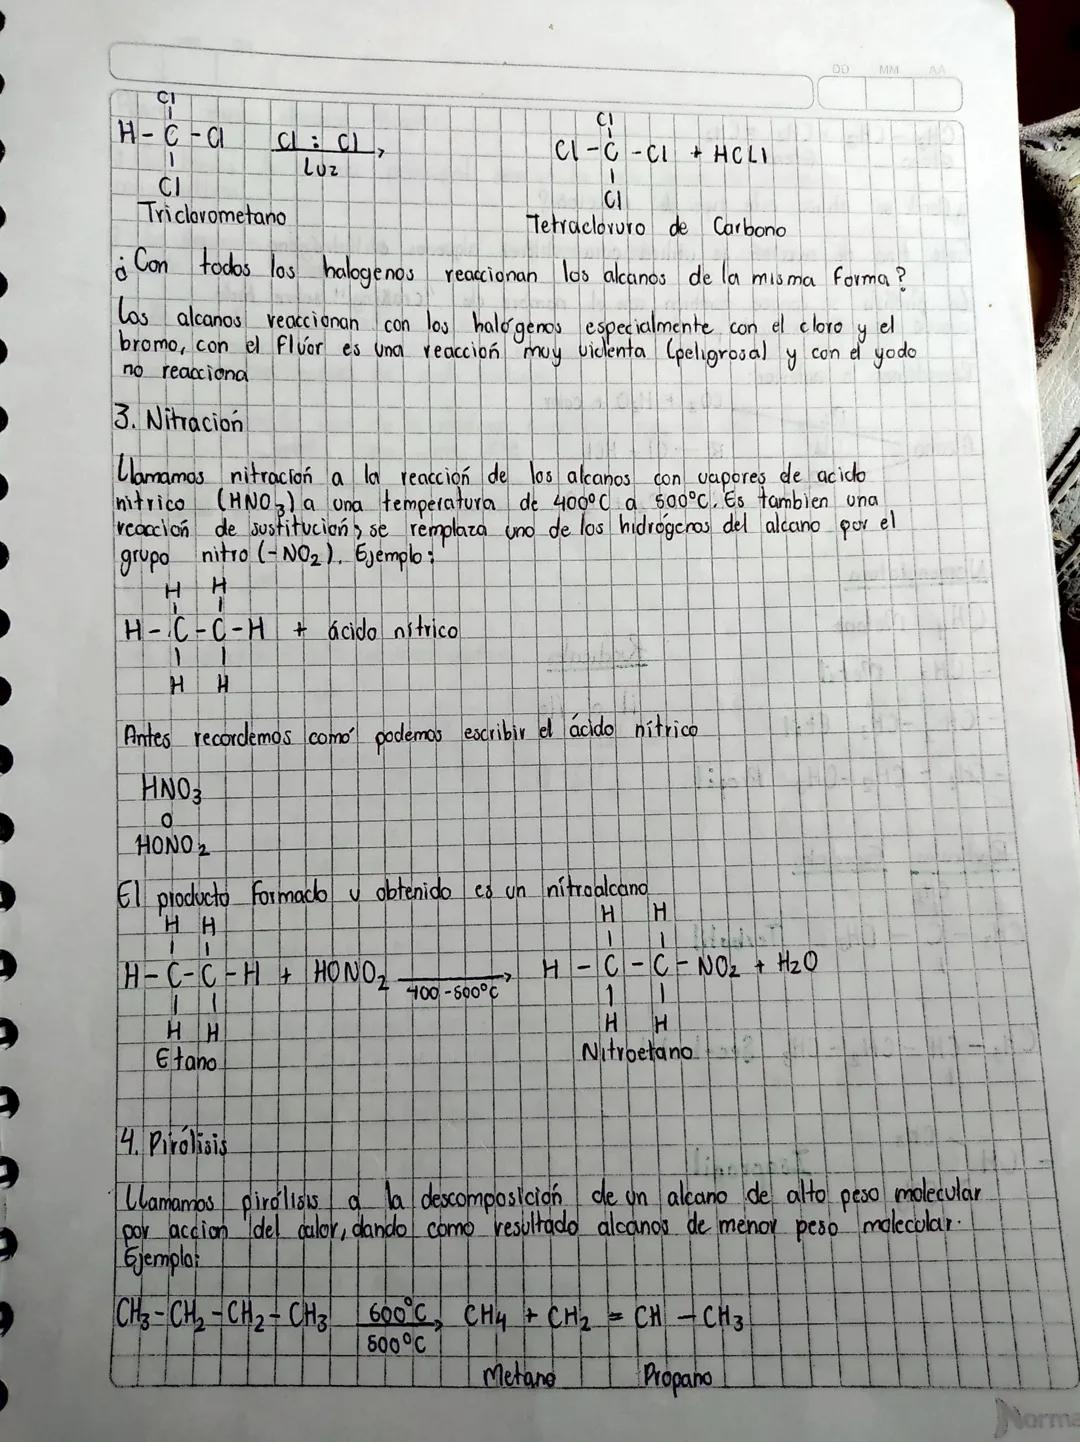 DD MM AA
Cl
H - C - Cl   Cl : Cl   Cl - C - Cl + HCLl
Luz
Cl
Cl
Cl
Triclorometano
Tetracloruro de Carbono
¿Con todos los halogenos reaccionan los alcanos de la misma forma?
Los alcanos reaccionan con los halógenos especialmente con el cloro y el
bromo, con el Flúor es una reacción muy violenta (peligrosa) y con el yodo
no reacciona
3. Nitración
Llamamos nitración a la reacción de los alcanos con vapores de acido
nitrico (HNO3) a una temperatura de 400°C a 500°C. Es tambien una
reacción de sustitución, se remplaza uno de los hidrógenos del alcano por el
grupo nitro (-NO2). Ejemplo:
H H
H - C - C - H + ácido nítrico
H H
Antes recordemos como podemos escribir el ácido nítrico
HNO3
o
HONO2
El producto Formado y obtenido es un nitroalcano
H H   H H
H - C - C - H + HONO2 → H - C - C - NO2 + H2O
400 - 500°C
H H   H H
Etano   Nitroetano
4. Pirólisis
Llamamos pirólisis a la descomposición de un alcano de alto peso molecular
por accion del calor, dando como resultado alcanos de menor peso molecular.
Ejemplo:
CH3 - CH2 - CH2 - CH3   600°C → CH4 + CH2 = CH - CH3
500°C
Metano   Propano
Norma